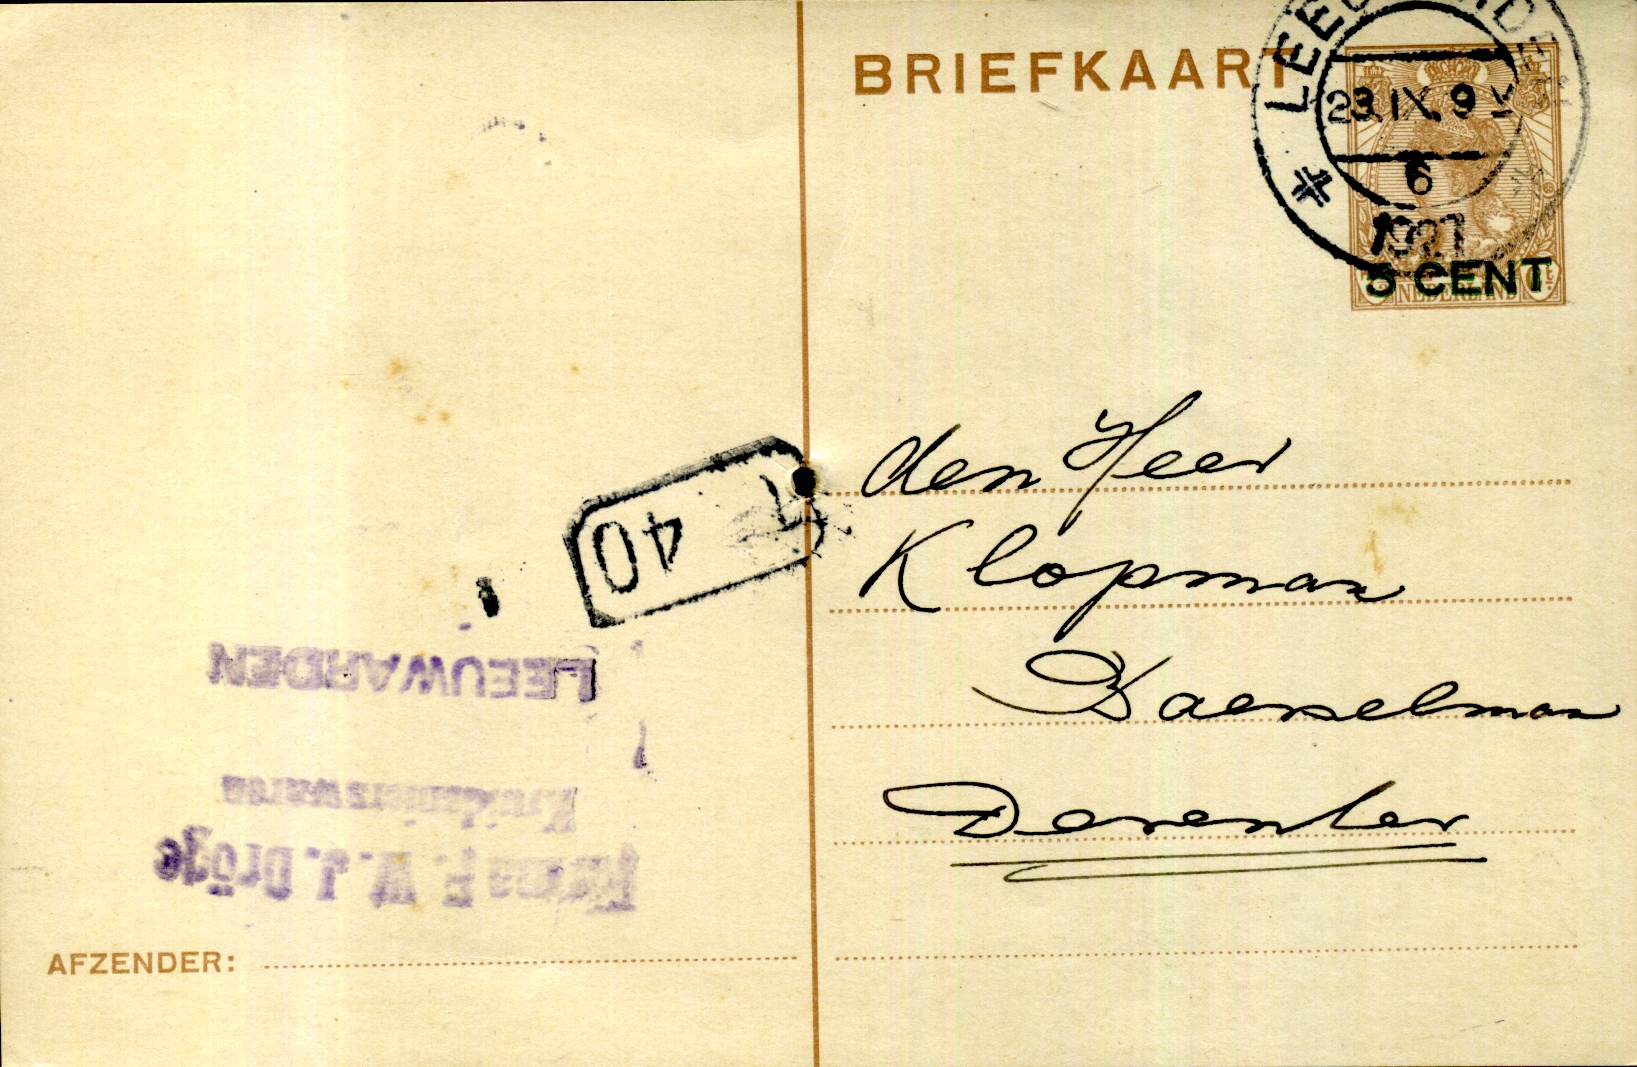 BRIEFKAART
LEEUWARDEN
23.IX.9 V
6
1921
5 CENT
NEDERLAND
den Heer
Klopman
Deventer
T 40
LEEUWARDEN
Kruidenierswaren
Firma F. W. J. Dröge
AFZENDER: